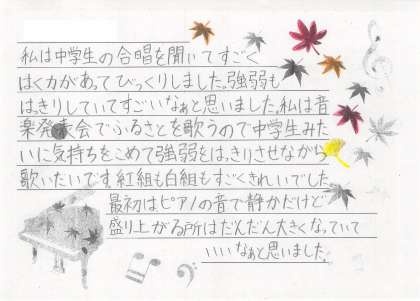 私は中学生の合唱を聞いてすごく
はく力があってびっくりしました。強弱も
はっきりしていてすごいなぁと思いました。私は音
楽発表会でふるさとを歌うので中学生みた
いに気持ちをこめて強弱をはっきりさせながら
歌いたいです。紅組も白組もすごくきれいでした。
最初はピアノの音で静かだけど
盛り上がる所はだんだん大きくなっていて
いいなぁと思いました。